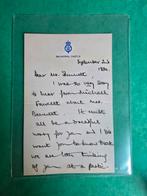 BALMORAL CASTLE
September 2nd
Dear Mr. Bennett
I was so very sorry
to hear from Michael
Fawcett about Mrs.
Bennett. It must
all be a dreadful
worry for you and I did
want you to know that
we are all thinking
of you at a